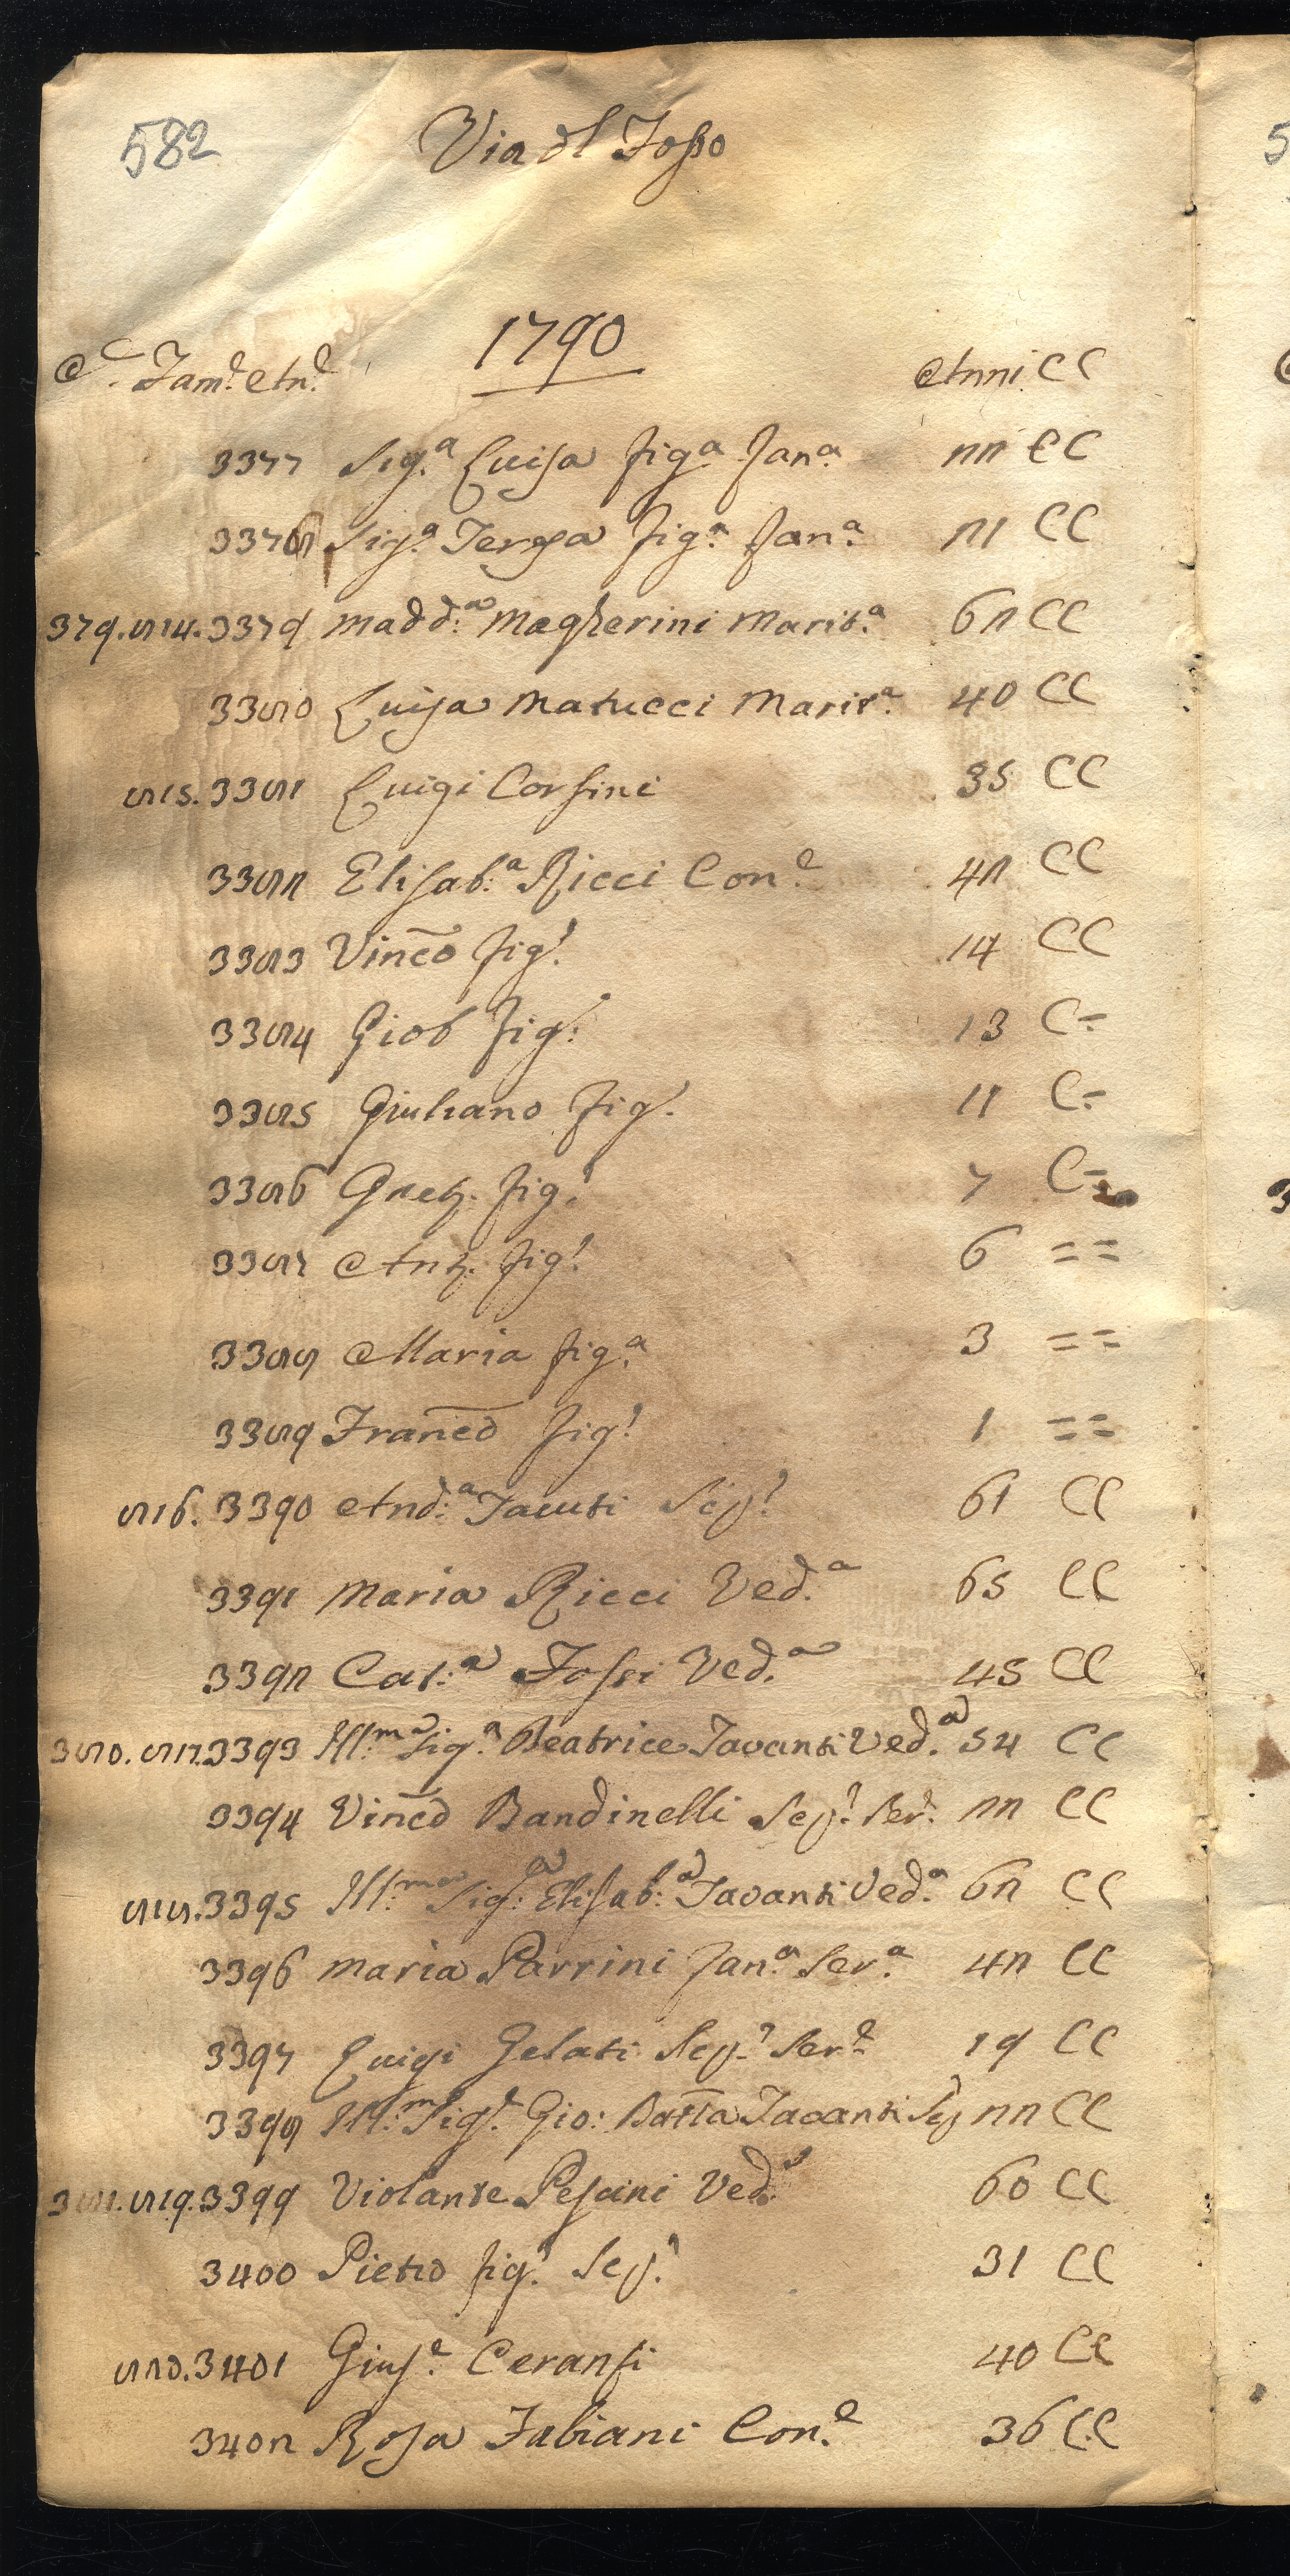 582
Via dl Fosso
1790
C. C. Fam.e An.e Anni CC
3377 Sig.a Luisa fig.a Fan.a 22 CC
3378 Sig.a Teresa fig.a Fan.a 21 CC
379. 814. 3379 Madd:a Magherini Marit.a 62 CC
3380 Luisa Matucci Marit.a 40 CC
815. 3381 Luigi Corsini 35 CC
3382 Elisab:a Ricci Con.e 42 CC
3383 Vinc̄o fig.o 14 CC
3384 Giob fig:o 13 C=
3385 Giuliano fig.o 11 C=
3386 Gaet.o fig.o 7 C=
3387 Ant.o fig.o 6 ==
3388 Maria fig.a 3 ==
3389 Franc̄o fig.o 1 ==
816. 3390 And:a Tavuti Scp.o 61 CC
3391 Maria Ricci Ved.a 65 CC
3392 Cat:a Fossi Ved.a 45 CC
380. 817. 3393 Ill.ma Sig.a Beatrice Tavanti Ved.a 54 CC
3394 Vinc̄o Bandinelli Scp.o Ser.e 22 CC
818. 3395 Ill:ma Sig:a Elisab:a Tavanti Ved.a 62 CC
3396 Maria Parrini Fan.a Ser.a 42 CC
3397 Luigi Gelati Scp.o Ser.e 19 CC
3398 Ill:m Sig.e Gio: Batt̄a Tavanti Scp 22 CC
381. 819. 3399 Violante Pescini Ved.a 60 CC
3400 Pietro fig.o Scp.o 31 CC
820. 3401 Gius.e Ceransi 40 CC
3402 Rosa Fabiani Con.e 36 CC